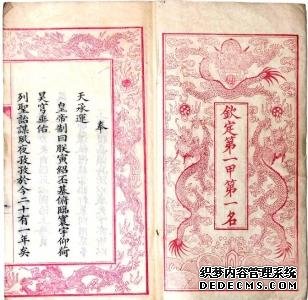 欽定第一甲第一名
奉
天承運
皇帝制曰朕寅紹丕基俯臨寰宇仰荷
昊穹垂佑
列聖詒謀夙夜孜孜於今二十有一年矣
织梦内容管理系统
DEDECMS.COM